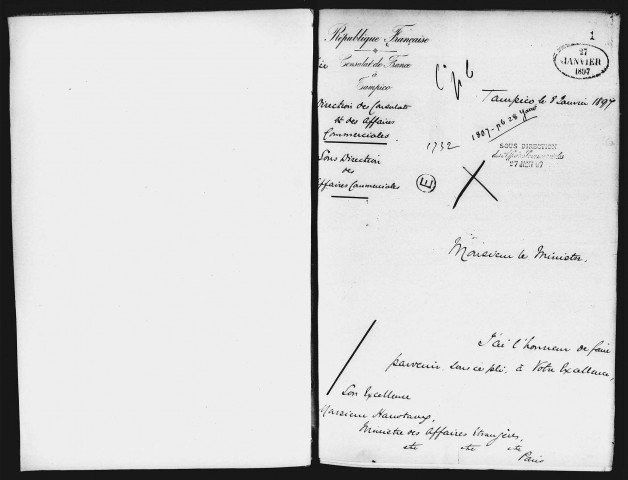 1
République Française
27
JANVIER
1897
Consulat de France
à
Tampico
Tampico le 8 Janvier 1897
Direction des Consulats
et des Affaires
Commerciales
1732
SOUS DIRECTION
des Affaires Commerciales
Sous Direction
des
Affaires Commerciales
E
Monsieur le Ministre.
J'ai l'honneur de faire
parvenir, sous ce pli, à Votre Excellence,
Son Excellence
Monsieur Hanotaux,
Ministre des Affaires Etrangères,
etc etc etc
Paris